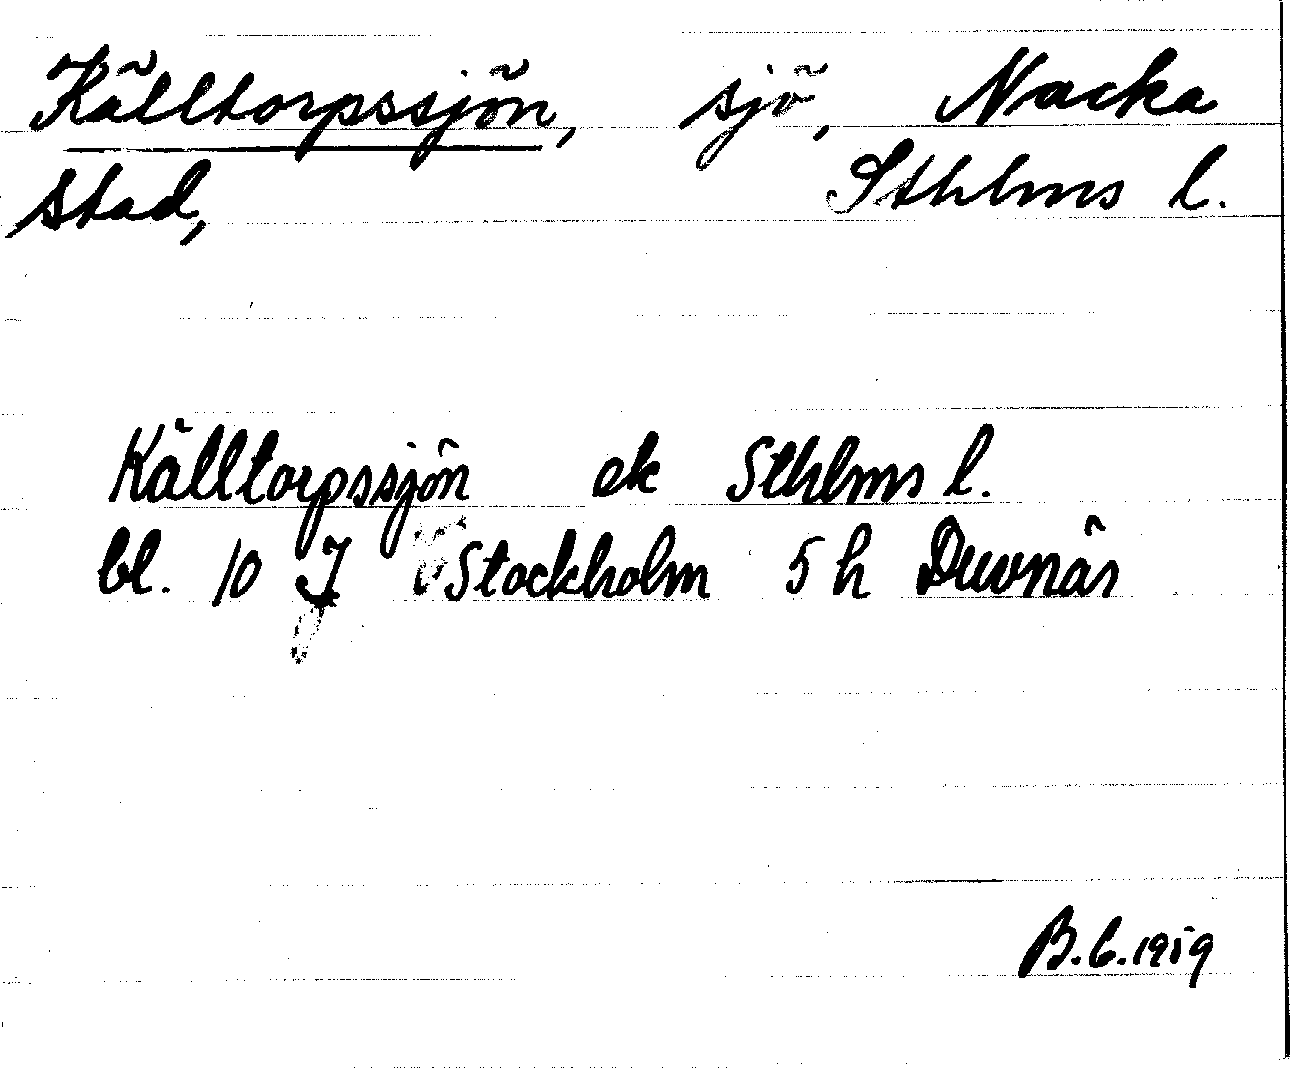 Källtorpssjön, sjö, Nacka
stad, Sthlms l.
Källtorpssjön ek Sthlms l.
bl. 10 I Stockholm 5 h Duvnäs
B.C. 1959